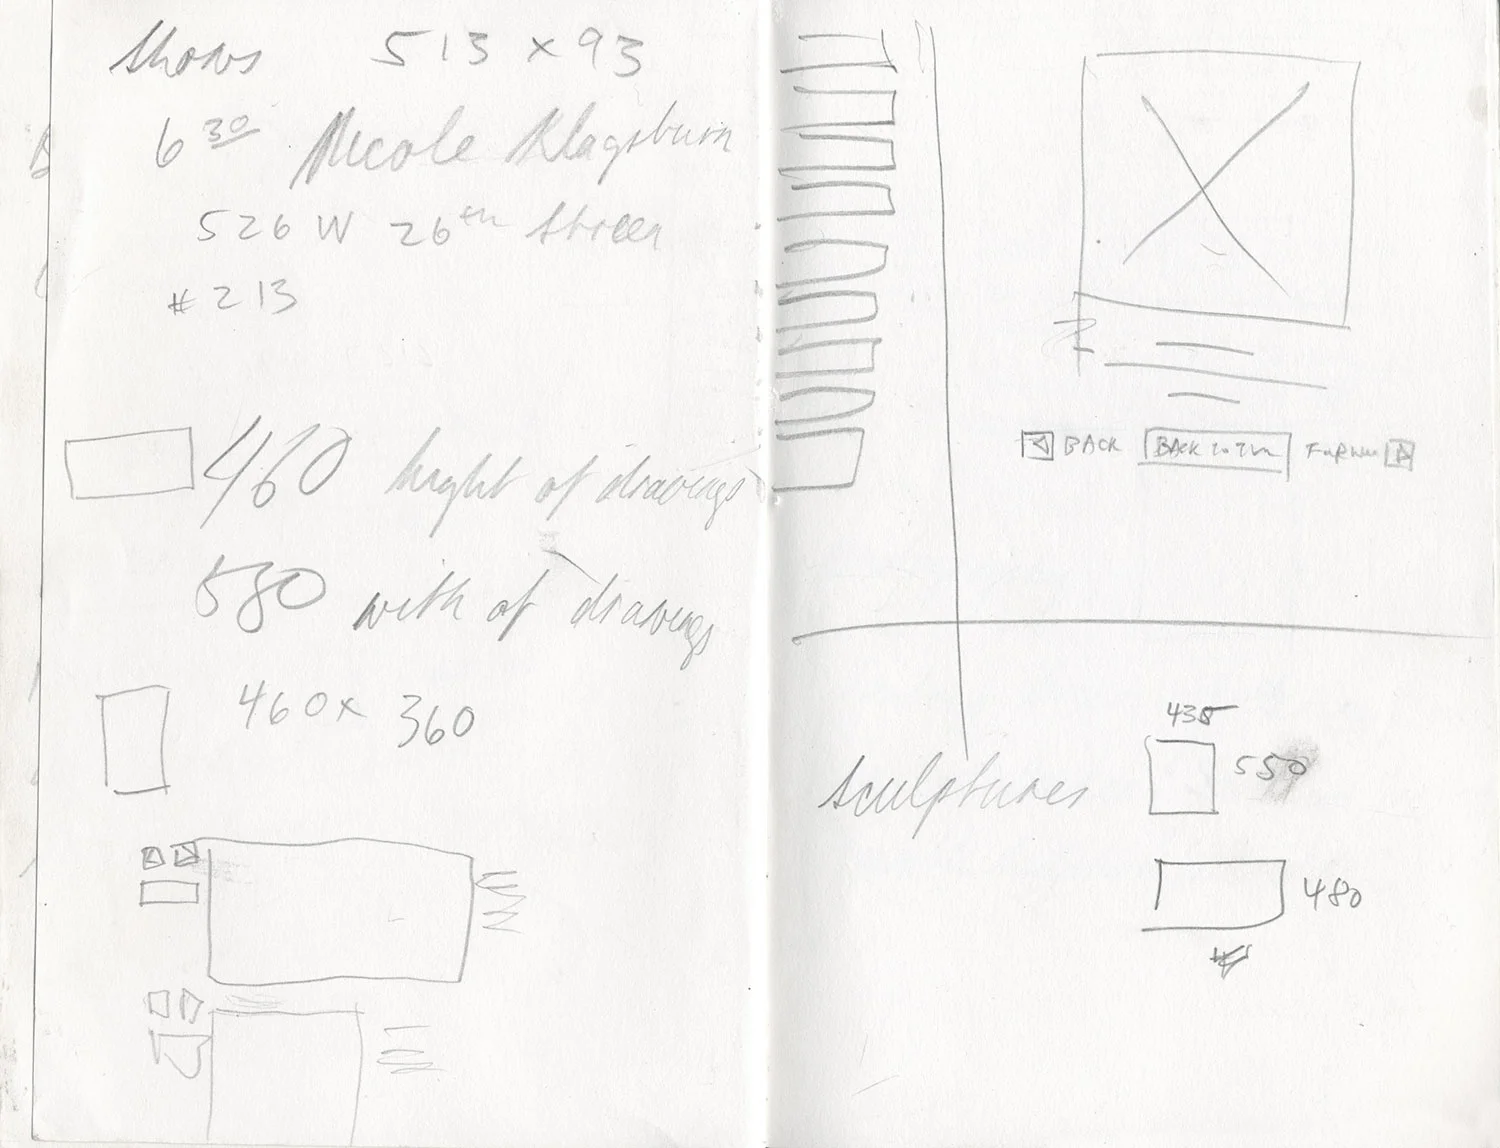 Shows 513 x 93
6 30 Nicole Klagsburn
526 W 26th Street
# 213
460 height of drawings
580 with of drawings
460 x 360
BACK BACK TO
435
sculptures 550
480